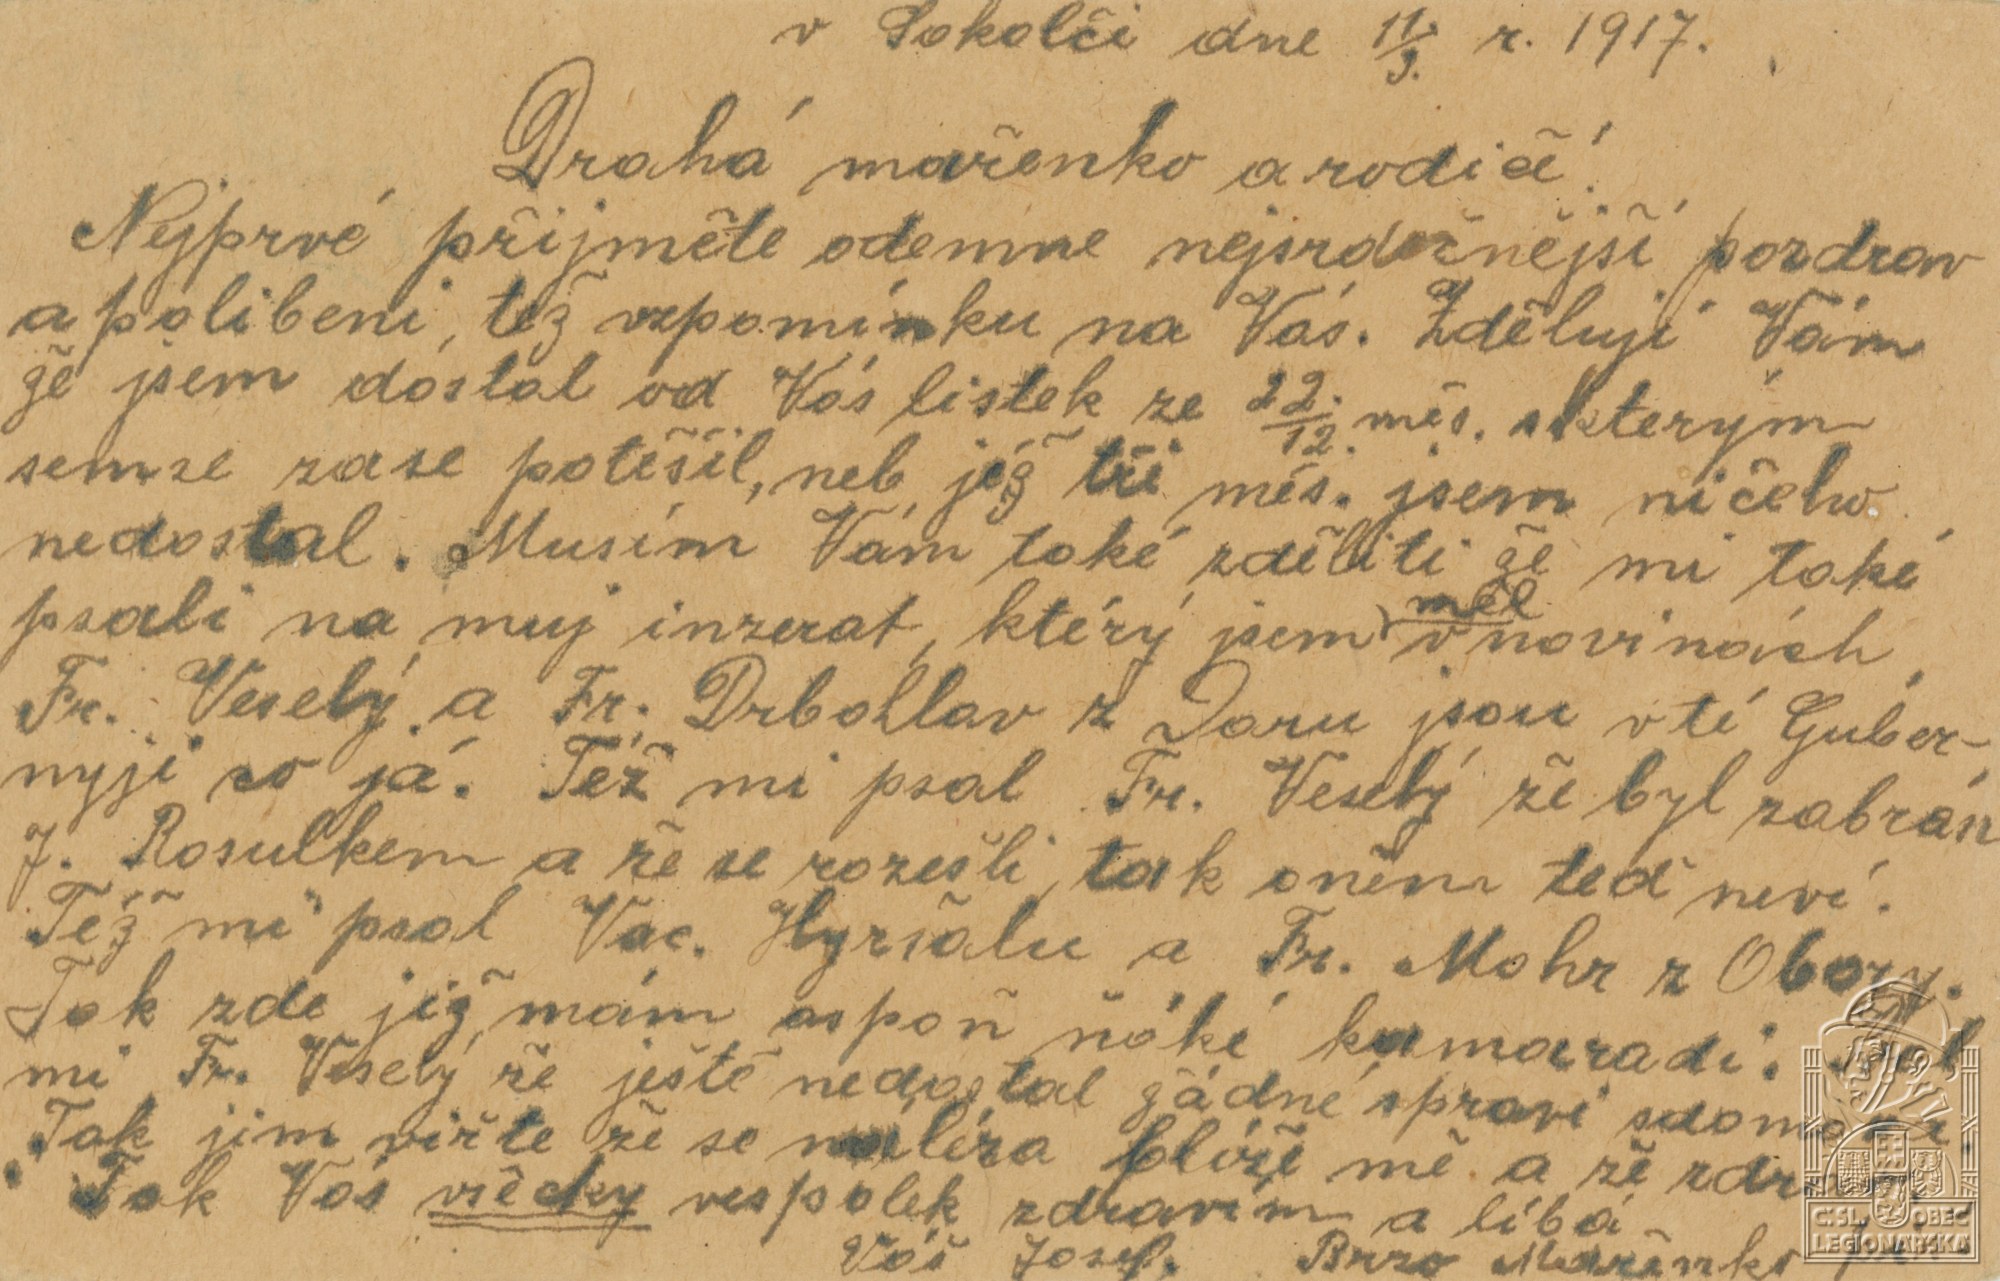 v Sokolči dne 11/3. r. 1917.
Drahá mařenko a rodiče!
Nejprvé přijměte odemne nejsrdečnější pozdrav
a polibeni, též vzpomínku na Vás. Zdělují Vám
že jsem dostal od Vás listek ze 22./12. měs. skterým
semse zase potěšil, neb již tři měs. jsem ničeho
nedostal. Musím Vám také zděliti že mi také
psali na muj inzerat, který jsem měl v novinách,
Fr. Veselý a Fr. Drbohlav z Doru jsou v té Guber-
nyji co já. Též mi psal Fr. Veselý že byl zabrán
J. Rosulkem a že se rozešli, tak oněm teď neví.
Též mi psal Vác. Hyršalu a Fr. Mohr z Obory.
Tak zde již mám aspoň ňáké kamaradi.
mi Fr. Veselý že ještě nedostal žádné spravi
Tak jim viřte že se naléza blíže mě a že
Tak Vás všecky vespolek zdravím a líbá-
Váš Josef. Brzo Mařenko
C:SL. OBEC
LEGIONÁŘSKÁ